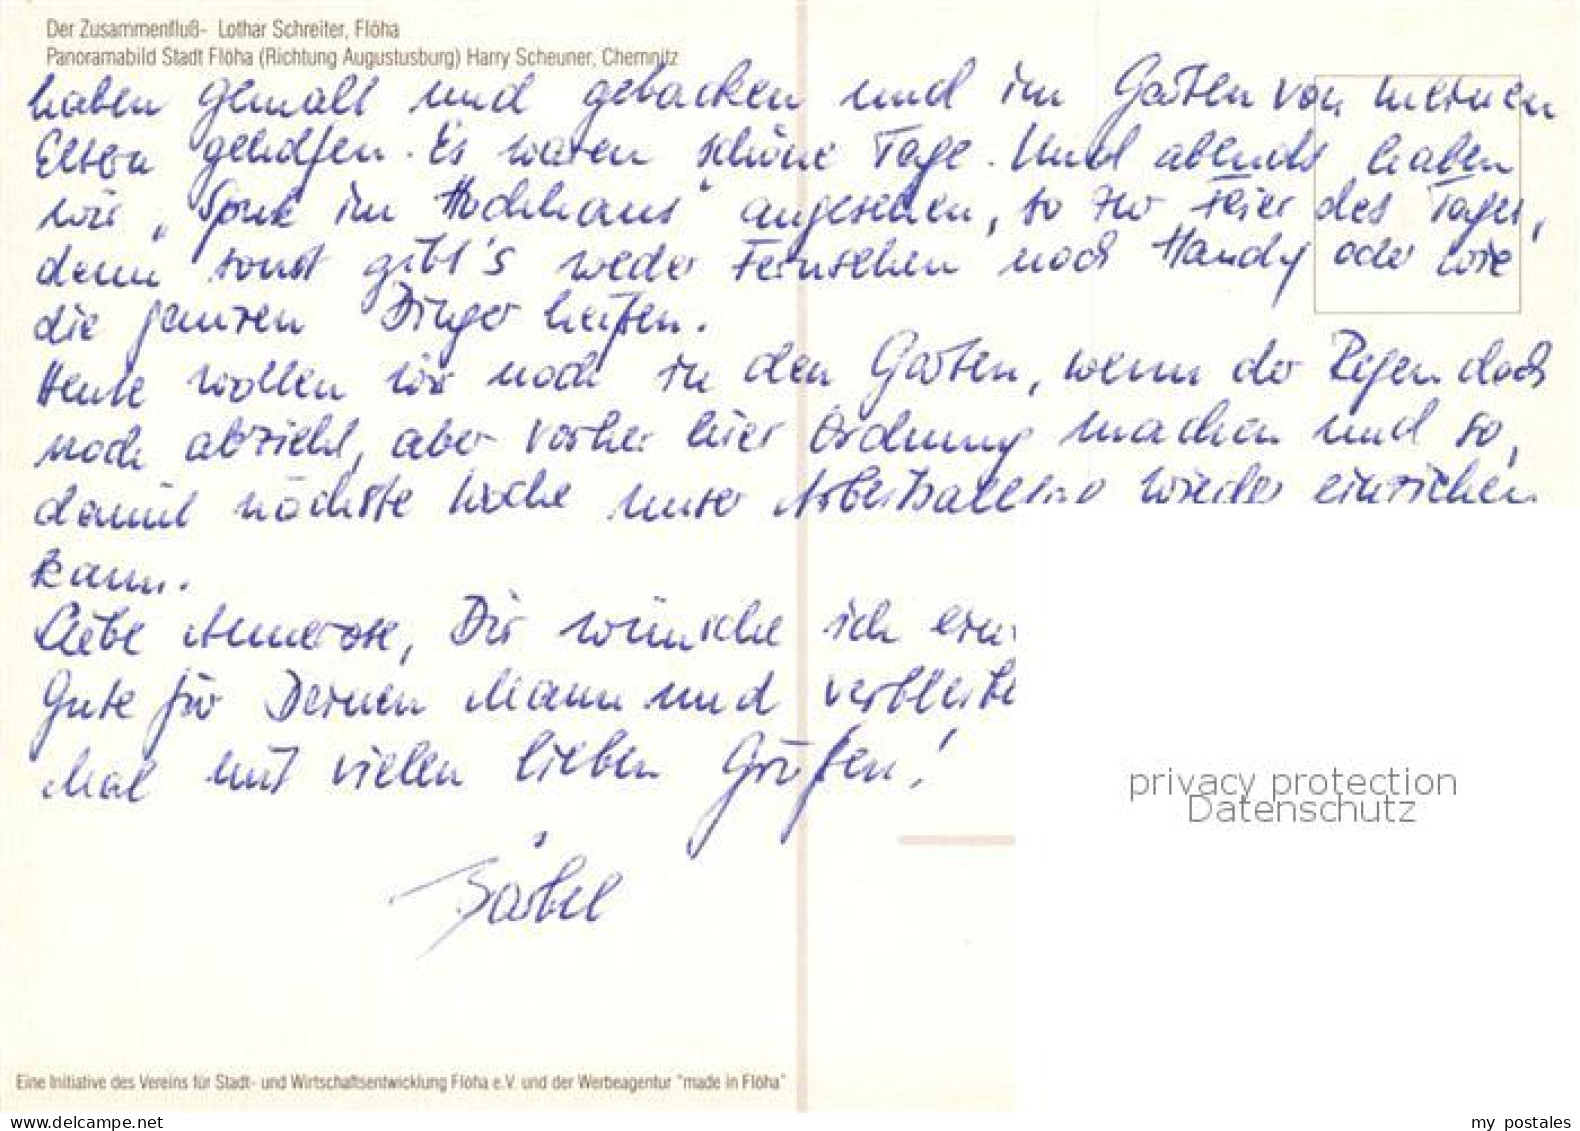 Der Zusammenfluß- Lothar Schreiter, Flöha
Panoramabild Stadt Flöha (Richtung Augustusburg) Harry Scheuner, Chemnitz
haben gemalt und gebacken und im Garten von meinen
Eltern geholfen. Es waren schöne Tage. Und abends haben
wir „Spuk im Hochhaus" angesehen, so zur Feier des Tages,
denn sonst gibt's weder Fernsehen noch Handy oder wie
die ganzen Dinger heißen.
Heute wollen wir noch in den Garten, wenn der Regen doch
noch abzieht, aber vorher hier Ordnung machen und so,
damit nächste Woche unser wieder einziehen
kann.
Liebe Annerose, Dir wünsche ich
Gute für Deinen Mann und
Mal mit vielen lieben Grüßen!
Bärbel
privacy protection
Datenschutz
Eine Initiative des Vereins für Stadt- und Wirtschaftsentwicklung Flöha e.V. und der Werbeagentur "made in Flöha"
my postales